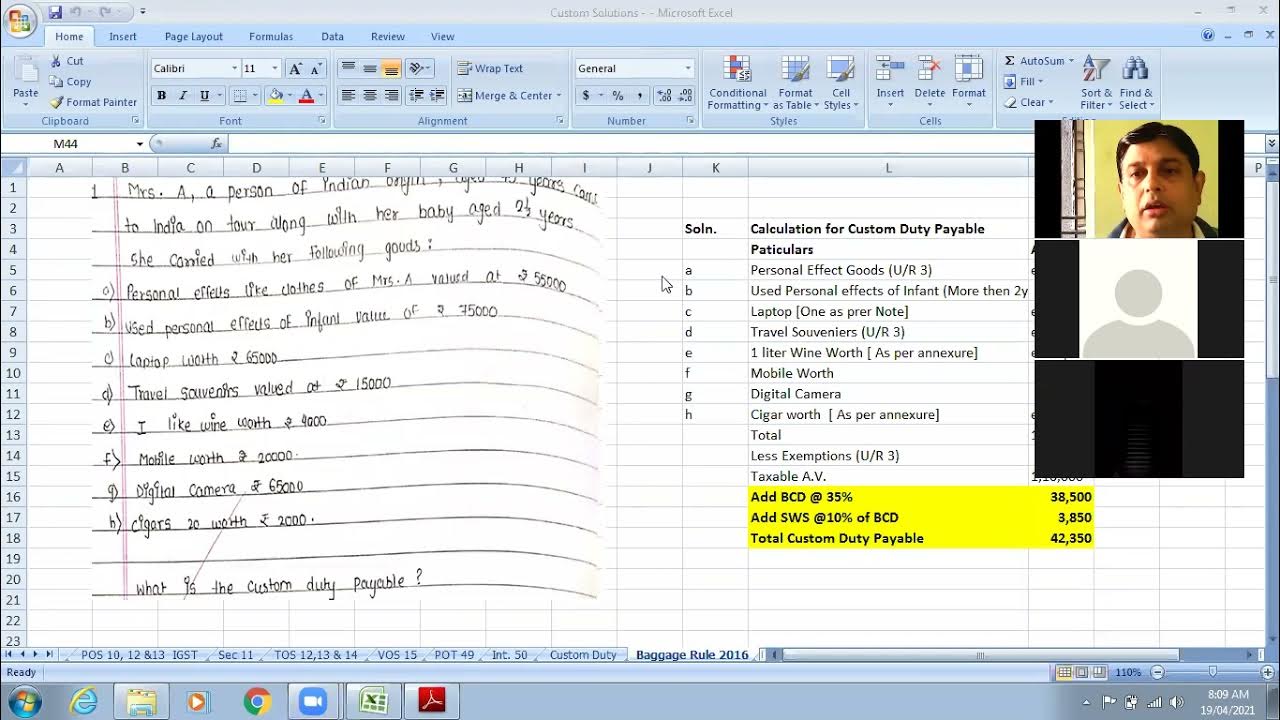 Custom Solutions - - Microsoft Excel
Home Insert Page Layout Formulas Data Review View
Paste
Cut
Copy
Format Painter
Clipboard
Calibri 11
B I U
Font
Wrap Text
Merge & Center
Alignment
General
$ % ,
Number
Conditional Formatting
Format as Table
Cell Styles
Styles
Insert Delete Format
Cells
AutoSum
Fill
Clear
Sort & Filter
Find & Select
M44 fx
A B C D E F G H I J K L P
1 Mrs. A, a person of Indian origin, aged 45 years
to India on tour along with her baby aged 2½ years
she carried with her following goods:
a) Personal effects like clothes of Mrs. A valued at ₹ 55000
b) used personal effects of infant value of ₹ 75000
c) Laptop worth ₹ 65000
d) Travel souvenirs valued at ₹ 15000
e) I like wine worth ₹ 4000
f) Mobile worth ₹ 20000.
g) Digital camera ₹ 65000
h) cigars 20 worth ₹ 2000.
What is the custom duty payable?
Soln. Calculation for Custom Duty Payable
Paticulars
a Personal Effect Goods (U/R 3)
b Used Personal effects of Infant (More then 2y
c Laptop [One as prer Note]
d Travel Souveniers (U/R 3)
e 1 liter Wine Worth [ As per annexure]
f Mobile Worth
g Digital Camera
h Cigar worth [ As per annexure]
Total
Less Exemptions (U/R 3)
Taxable A.V.
Add BCD @ 35% 38,500
Add SWS @10% of BCD 3,850
Total Custom Duty Payable 42,350
1
2
3
4
5
6
7
8
9
10
11
12
13
14
15
16
17
18
19
20
21
22
23
POS 10, 12 &13 IGST Sec 11 TOS 12,13 & 14 VOS 15 POT 49 Int. 50 Custom Duty Baggage Rule 2016
Ready 110%
8:09 AM
19/04/2021